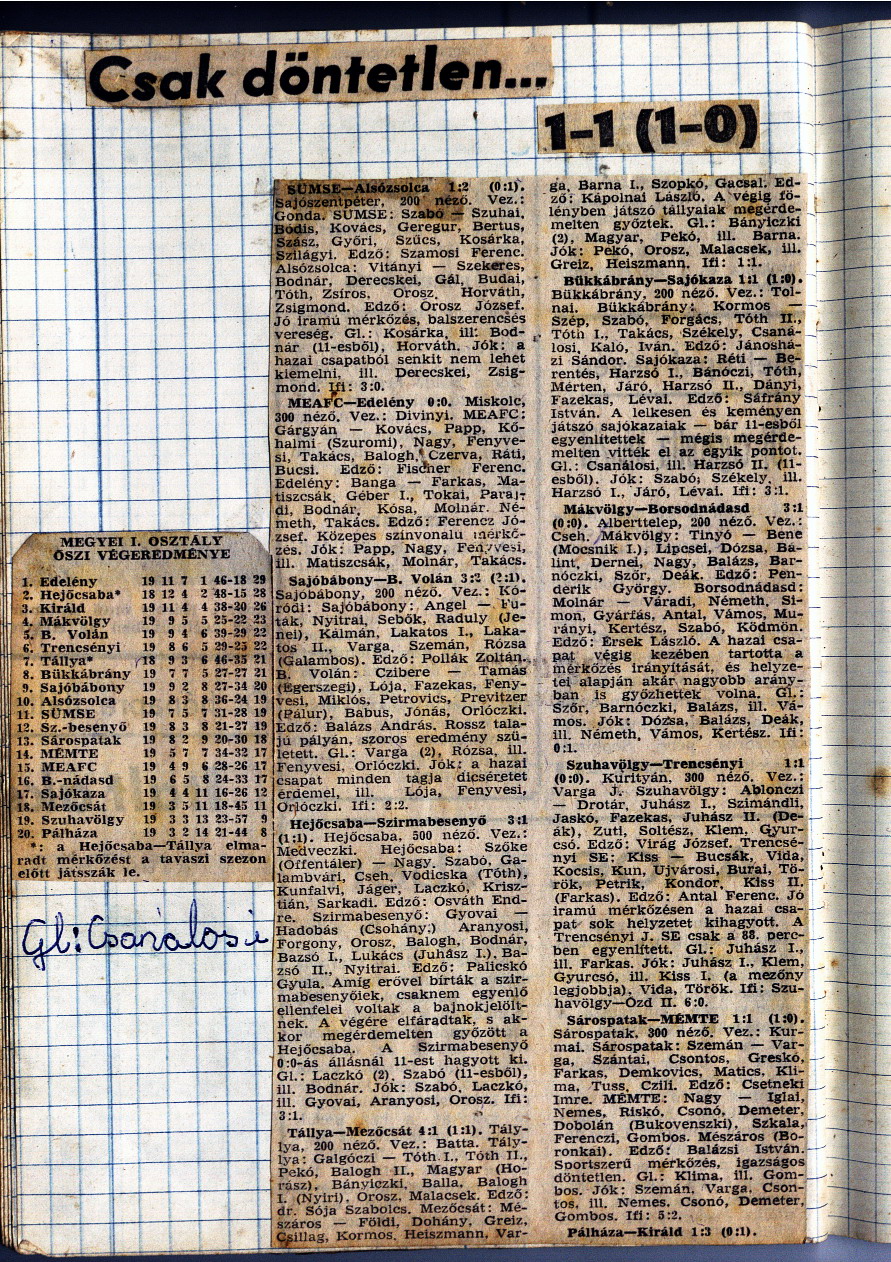 Csak döntetlen...
1-1 (1-0)
SÜMSE—Alsózsolca 1:2 (0:1).
Sajószentpéter, 200 néző. Vez.:
Gonda. SÜMSE: Szabó — Szuhai,
Bódis, Kovács, Geregur, Bertus,
Szász, Győri, Szűcs, Kosárka,
Szilágyi. Edző: Szamosi Ferenc.
Alsózsolca: Vitányi — Szekeres,
Bodnár, Derecskei, Gál, Budai,
Tóth, Zsíros, Orosz, Horváth,
Zsigmond. Edző: Orosz József.
Jó iramú mérkőzés, balszerencsés
vereség. Gl.: Kosárka, ill. Bod-
nár (11-esből), Horváth. Jók: a
hazai csapatból senkit nem lehet
kiemelni, ill. Derecskei, Zsig-
mond. Ifi: 3:0.
MEAFC—Edelény 0:0. Miskolc,
300 néző. Vez.: Divinyi. MEAFC:
Gárgyán — Kovács, Papp, Kő-
halmi (Szuromi), Nagy, Fenyve-
si, Takács, Balogh, Czerva, Ráti,
Bucsi. Edző: Fischer Ferenc.
Edelény: Banga — Farkas, Ma-
tiszcsák, Géber I., Tokai, Paraj-
di, Bodnár, Kósa, Molnár, Né-
meth, Takács. Edző: Ferencz Jó-
zsef. Közepes színvonalú mérkő-
zés. Jók: Papp, Nagy, Fenyvesi,
ill. Matiszcsák, Molnár, Takács.
Sajóbábony—B. Volán 3:2 (2:1).
Sajóbábony, 200 néző. Vez.: Kó-
ródi: Sajóbábony: Angel — Fu-
ták, Nyitrai, Sebők, Raduly (Je-
nei), Kálmán, Lakatos I., Laka-
tos II., Varga, Szemán, Rózsa
(Galambos). Edző: Pollák Zoltán.
B. Volán: Czibere — Tamás
(Egerszegi), Lója, Fazekas, Feny-
vesi, Miklós, Petrovics, Previtzer
(Pálur), Babus, Jónás, Orlóczki.
Edző: Balázs András. Rossz tala-
jú pályán, szoros eredmény szü-
letett. Gl.: Varga (2), Rózsa, ill.
Fenyvesi, Orlóczki. Jók: a hazai
csapat minden tagja dicséretet
érdemel, ill. Lója, Fenyvesi,
Orlóczki. Ifi: 2:2.
Hejőcsaba—Szirmabesenyő 3:1
(1:1). Hejőcsaba, 500 néző. Vez.:
Medveczki. Hejőcsaba: Szőke
(Offentáler) — Nagy, Szabó, Ga-
lambvári, Cseh, Vodicska (Tóth),
Kunfalvi, Jáger, Laczkó, Krisz-
tián, Sarkadi. Edző: Osváth End-
re. Szirmabesenyő: Gyovai —
Hadobás (Csohány) Aranyosi,
Forgony, Orosz, Balogh, Bodnár,
Bazsó I., Lukács (Juhász I.), Ba-
zsó II., Nyitrai. Edző: Palicskó
Gyula. Amíg erővel bírták a szir-
mabesenyőiek, csaknem egyenlő
ellenfelei voltak a bajnokjelölt-
nek. A végére elfáradtak, s ak-
kor megérdemelten győzött a
Hejőcsaba. A Szirmabesenyő
0:0-ás állásnál 11-est hagyott ki.
Gl.: Laczkó (2), Szabó (11-esből),
ill. Bodnár. Jók: Szabó, Laczkó,
ill. Gyovai, Aranyosi, Orosz. Ifi:
3:1.
Tállya—Mezőcsát 4:1 (1:1). Tály-
lya, 200 néző. Vez.: Batta. Tály-
lya: Galgóczi — Tóth I., Tóth II.,
Pekó, Balogh II., Magyar (Ho-
rász), Bányiczki, Balla, Balogh
I. (Nyiri), Orosz, Malacsek. Edző:
dr. Sója Szabolcs. Mezőcsát: Mé-
száros — Földi, Dohány, Greiz,
Csillag, Kormos, Heiszmann, Var-
ga, Barna I., Szopkó, Gacsal. Ed-
ző: Kápolnai László. A végig fö-
lényben játszó tállyaiak megérde-
melten győztek. Gl.: Bányiczki
(2), Magyar, Pekó, ill. Barna.
Jók: Pekó, Orosz, Malacsek, ill.
Greiz, Heiszmann. Ifi: 1:1.
Bükkábrány—Sajókaza 1:1 (1:0).
Bükkábrány, 200 néző. Vez.: Tol-
nai. Bükkábrány: Kormos —
Szép, Szabó, Forgács, Tóth II.,
Tóth I., Takács, Székely, Csaná-
losi, Kaló, Iván. Edző: Jánoshá-
zi Sándor. Sajókaza: Réti — Be-
rentés, Harzsó I., Bánóczi, Tóth,
Mérten, Járó, Harzsó II., Dányi,
Fazekas, Lévai. Edző: Sáfrány
István. A lelkesen és keményen
játszó sajókazaiak — bár 11-esből
egyenlítettek — mégis megérde-
melten vitték el az egyik pontot.
Gl.: Csanálosi, ill. Harzsó II. (11-
esből). Jók: Szabó, Székely, ill.
Harzsó I., Járó, Lévai. Ifi: 3:1.
Mákvölgy—Borsodnádasd 3:1
(0:0). Alberttelep, 200 néző. Vez.:
Cseh. Mákvölgy: Tinyó — Bene
(Mocsnik I.), Lipcsei, Dózsa, Bá-
lint, Dernei, Nagy, Balázs, Bar-
nóczki, Szőr, Deák. Edző: Pen-
derik György. Borsodnádasd:
Molnár — Váradi, Németh, Si-
mon, Gyárfás, Antal, Vámos, Mu-
rányi, Kertész, Szabó, Ködmön.
Edző: Érsek László. A hazai csa-
pat végig kezében tartotta a
mérkőzés irányítását, és helyze-
tei alapján akár nagyobb arány-
ban is győzhettek volna. Gl.:
Szőr, Barnóczki, Balázs, ill. Vá-
mos. Jók: Dózsa, Balázs, Deák,
ill. Németh, Vámos, Kertész. Ifi:
0:1.
Szuhavölgy—Trencsényi 1:1
(0:0). Kurityán, 300 néző. Vez.:
Varga J. Szuhavölgy: Ablonczi
— Drotár, Juhász I., Szimándli,
Jaskó, Fazekas, Juhász II. (De-
ák), Zuti, Soltész, Klem, Gyur-
csó. Edző: Virág József. Trencsé-
nyi SE: Kiss — Bucsák, Vida,
Kocsis, Kun, Ujvárosi, Burai, Tö-
rök, Petrik, Kondor, Kiss II.
(Farkas). Edző: Antal Ferenc. Jó
iramú mérkőzésen a hazai csa-
pat sok helyzetet kihagyott. A
Trencsényi J. SE csak a 88. perc-
ben egyenlített. Gl.: Juhász I.,
ill. Farkas. Jók: Juhász I., Klem,
Gyurcsó, ill. Kiss I. (a mezőny
legjobbja), Vida, Török. Ifi: Szu-
havölgy—Ózd II. 6:0.
Sárospatak—MÉMTE 1:1 (1:0).
Sárospatak, 300 néző. Vez.: Kur-
mai. Sárospatak: Szemán — Var-
ga, Szántai, Csontos, Greskó,
Farkas, Demkovics, Matics, Kli-
ma, Tuss, Czili. Edző: Csetneki
Imre. MÉMTE: Nagy — Iglai,
Nemes, Riskó, Csonó, Demeter,
Dobolán (Bukovenszki), Szkala,
Ferenczi, Gombos, Mészáros (Bo-
ronkai). Edző: Balázsi István.
Sportszerű mérkőzés, igazságos
döntetlen. Gl.: Klima, ill. Gom-
bos. Jók: Szemán, Varga, Cson-
tos, ill. Nemes, Csonó, Demeter,
Gombos. Ifi: 5:2.
Pálháza—Királd 1:3 (0:1).
MEGYEI I. OSZTÁLY
ŐSZI VÉGEREDMÉNYE
1. Edelény 19 11 7 1 46-18 29
2. Hejőcsaba* 18 12 4 2 48-15 28
3. Királd 19 11 4 4 38-20 26
4. Mákvölgy 19 9 5 5 25-22 23
5. B. Volán 19 9 4 6 39-29 22
6. Trencsényi 19 8 6 5 29-23 22
7. Tállya* 18 9 3 6 46-35 21
8. Bükkábrány 19 7 7 5 27-27 21
9. Sajóbábony 19 9 2 8 27-34 20
10. Alsózsolca 19 8 3 8 36-24 19
11. SÜMSE 19 7 5 7 31-28 19
12. Sz.-besenyő 19 8 3 8 21-27 19
13. Sárospatak 19 8 2 9 20-30 18
14. MÉMTE 19 5 7 7 34-32 17
15. MEAFC 19 4 9 6 28-26 17
16. B.-nádasd 19 6 5 8 24-33 17
17. Sajókaza 19 4 4 11 16-26 12
18. Mezőcsát 19 3 5 11 18-45 11
19. Szuhavölgy 19 3 3 13 23-57 9
20. Pálháza 19 3 2 14 21-44 8
*: a Hejőcsaba—Tállya elma-
radt mérkőzést a tavaszi szezon
előtt játsszák le.
Gl: Csanálosi